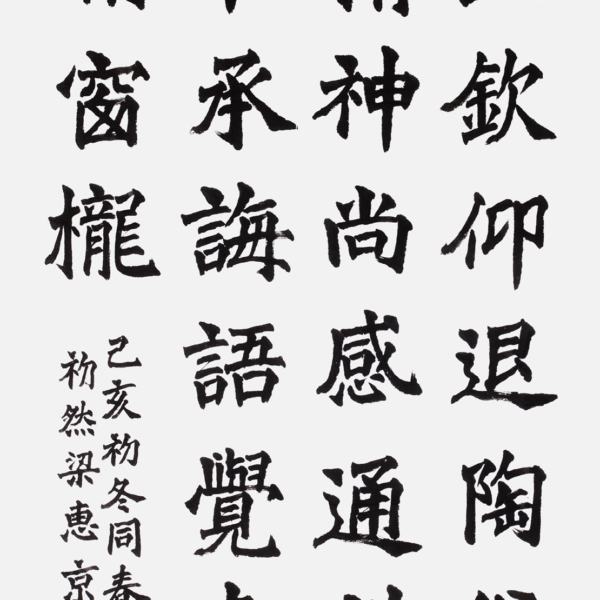 欽仰退陶
神尚感通
承誨語覺
窗櫳
己亥初冬同春
初然梁惠京